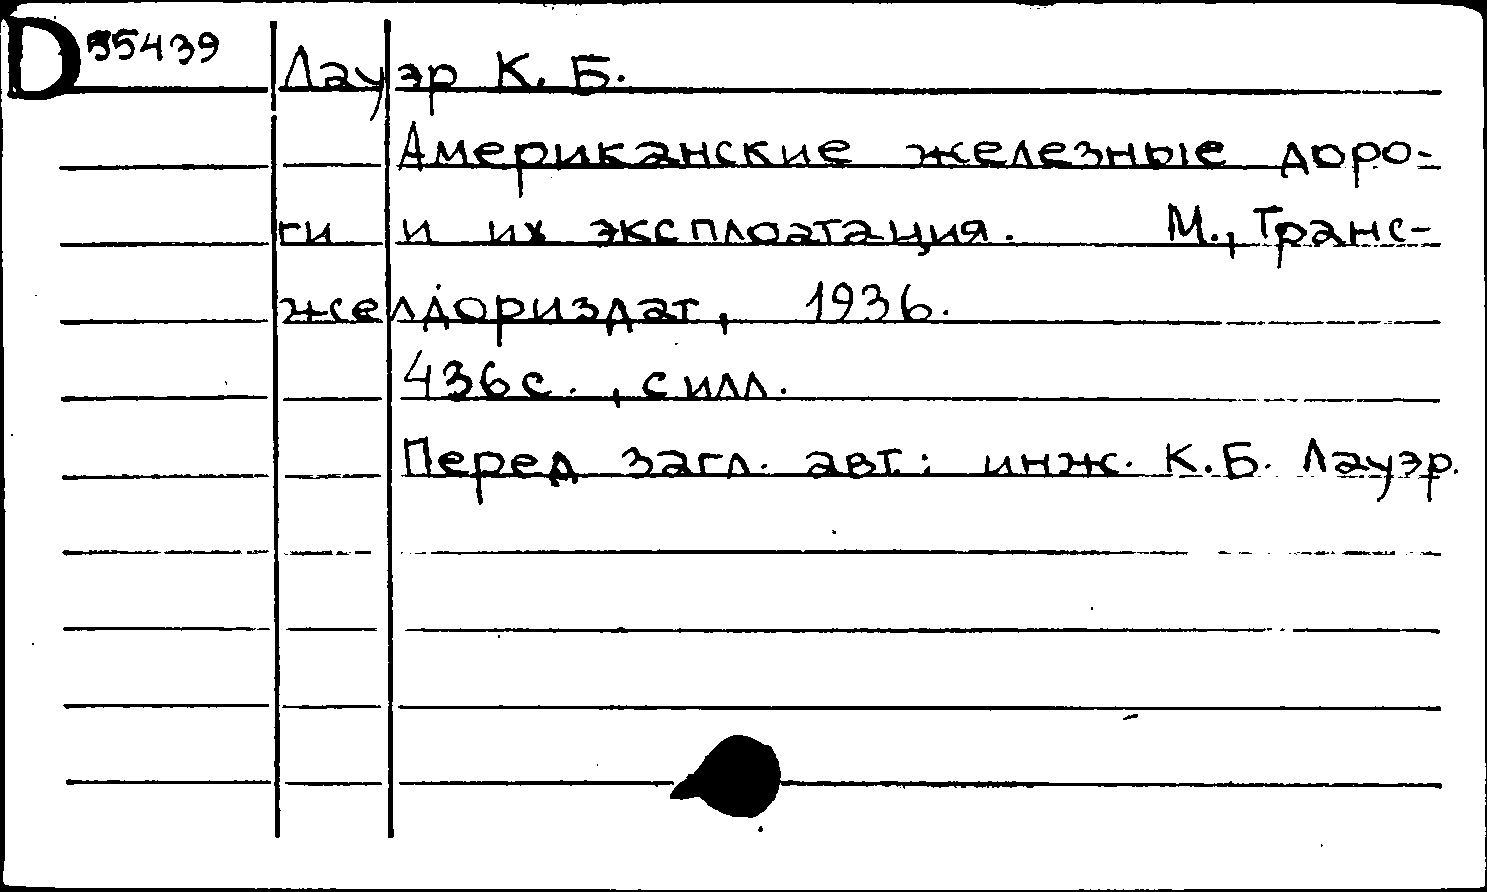 D 55439
Лауэр К. Б.
Американские железные доро-
ги и их эксплоатация. М., Транс-
желдориздат, 1936.
436с., с илл.
Перед загл. авт.: инж. К.Б. Лауэр.